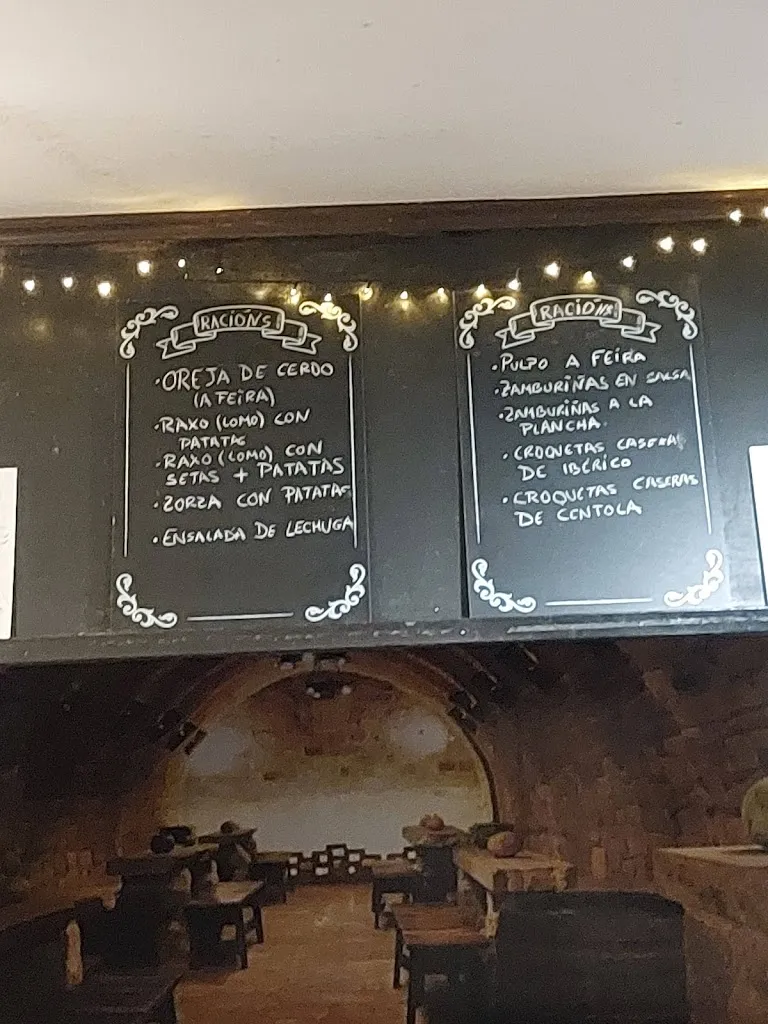 RACIÓNS
·OREJA DE CERDO
(A FEIRA)
·RAXO (LOMO) CON
PATATAS
·RAXO (LOMO) CON
SETAS + PATATAS
·ZORZA CON PATATAS
·ENSALADA DE LECHUGA
RACIÓNS
·PULPO A FEIRA
·ZAMBURIÑAS EN SALSA
·ZAMBURIÑAS A LA
PLANCHA.
·CROQUETAS CASERAS
DE IBÉRICO
·CROQUETAS CASERAS
DE CENTOLA